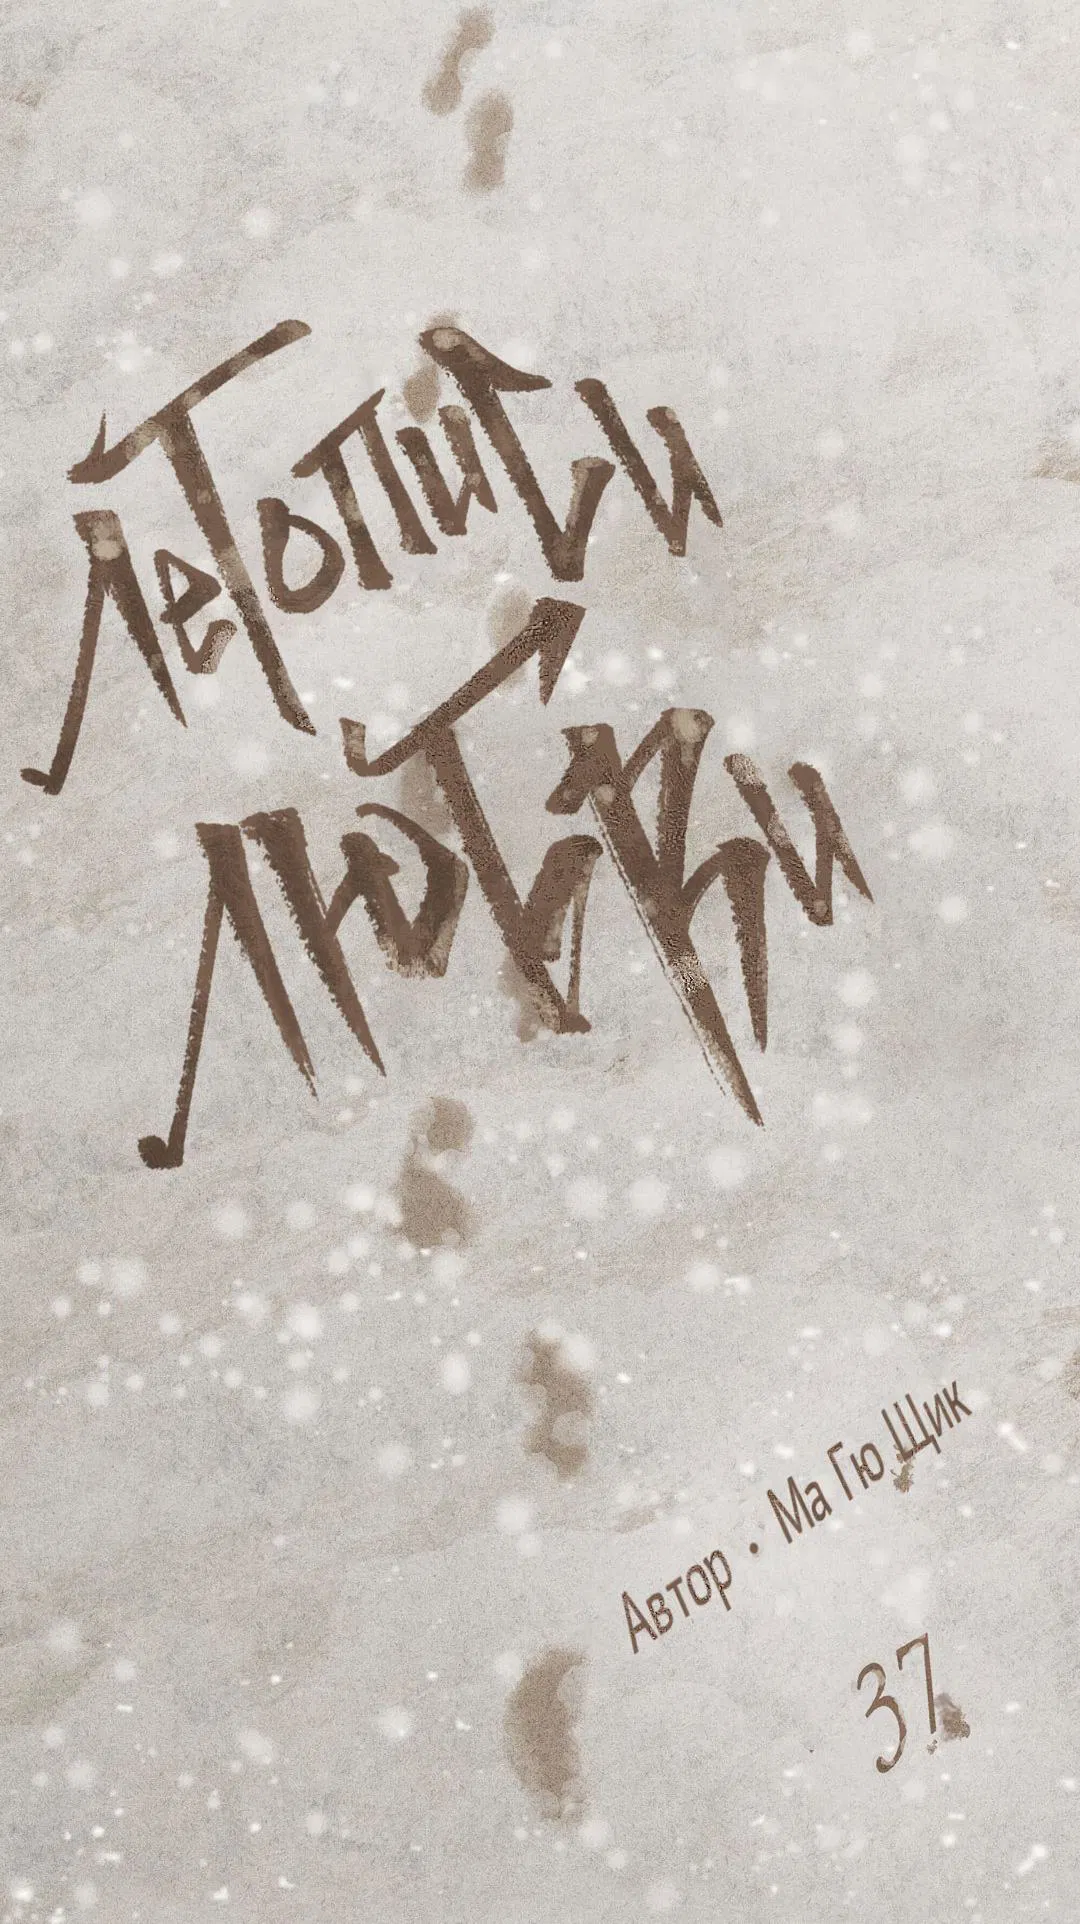 Летописи
Любви
Автор • Ма Гю Щик
37